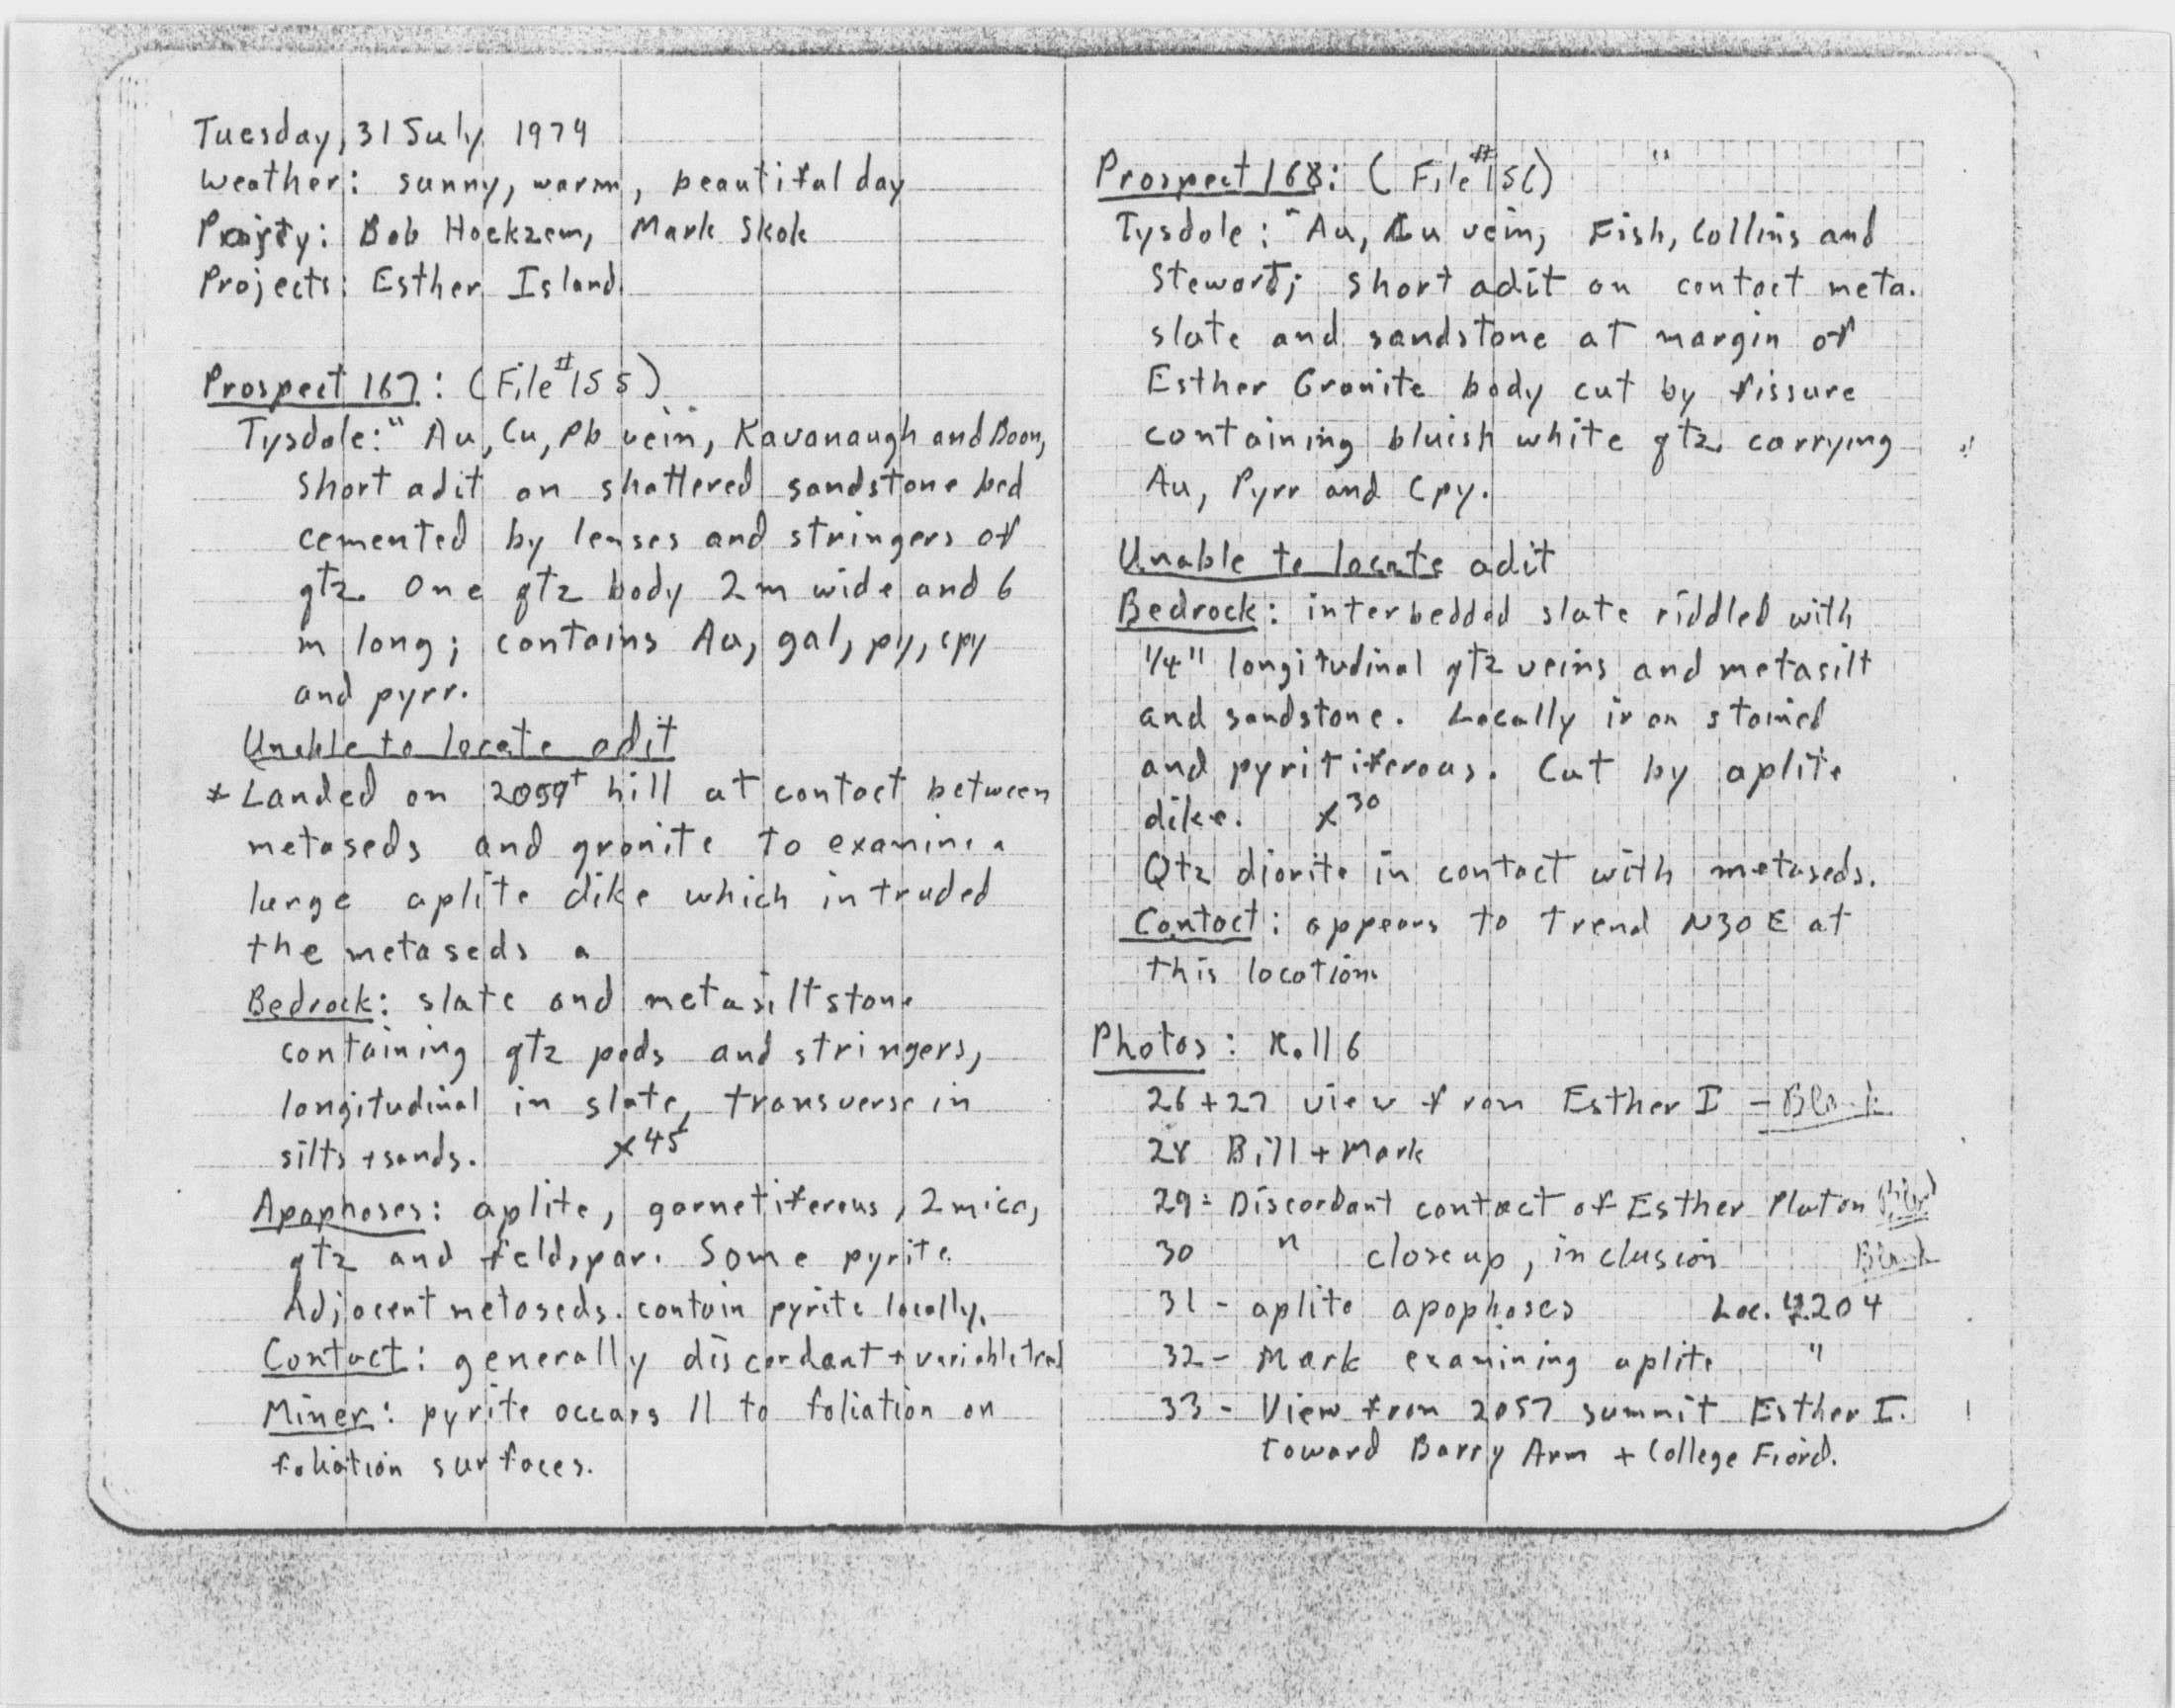 Tuesday, 31 July 1979
Weather: sunny, warm, beautiful day
Party: Bob Hoekzem, Mark Skok
Projects: Esther Island
Prospect 167: (File #155)
Tysdale: "Au, Cu, Pb vein, Kavanaugh and Boon,
short adit on shattered sandstone bed
cemented by lenses and stringers of
qtz. One qtz body 2m wide and 6
m long; contains Au, gal, py, cpy
and pyrr.
Unable to locate adit
* Landed on hill at contact between
metaseds and granite to examine a
large aplite dike which intruded
the metaseds
Bedrock: slate and metasiltstone
containing qtz pods and stringers,
longitudinal in slate, transverse in
silts + sands. x 45
Apophoses: aplite, garnetiferous, 2 mica,
qtz and feldspar. Some pyrite.
Adjacent metaseds. contain pyrite locally.
Contact: generally discordant + variable
Miner: pyrite occurs 11 to foliation on
foliation surfaces.
Prospect 168: (File #156) "
Tysdale: "Au, Cu vein, Fish, Collins and
Stewart; short adit on contact meta.
slate and sandstone at margin of
Esther Granite body cut by fissure
containing bluish white qtz. carrying
Au, Pyrr and Cpy.
Unable to locate adit
Bedrock: interbedded slate riddled with
1/4" longitudinal qtz veins and metasilt
and sandstone. Locally iron stained
and pyritiferous. Cut by aplite
dike. x 30
Qtz diorite in contact with metaseds.
Contact: appears to trend N30E at
this location.
Photos: Roll 6
26 + 27 view from Esther I - Blank
28 Bill + Mark
29 - Discordant contact of Esther Pluton
30 " close up, inclusion Blank
31 - aplite apophoses Loc. 4204
32 - Mark examining aplite "
33 - View from 2057 summit Esther I.
toward Barry Arm + College Fiord.